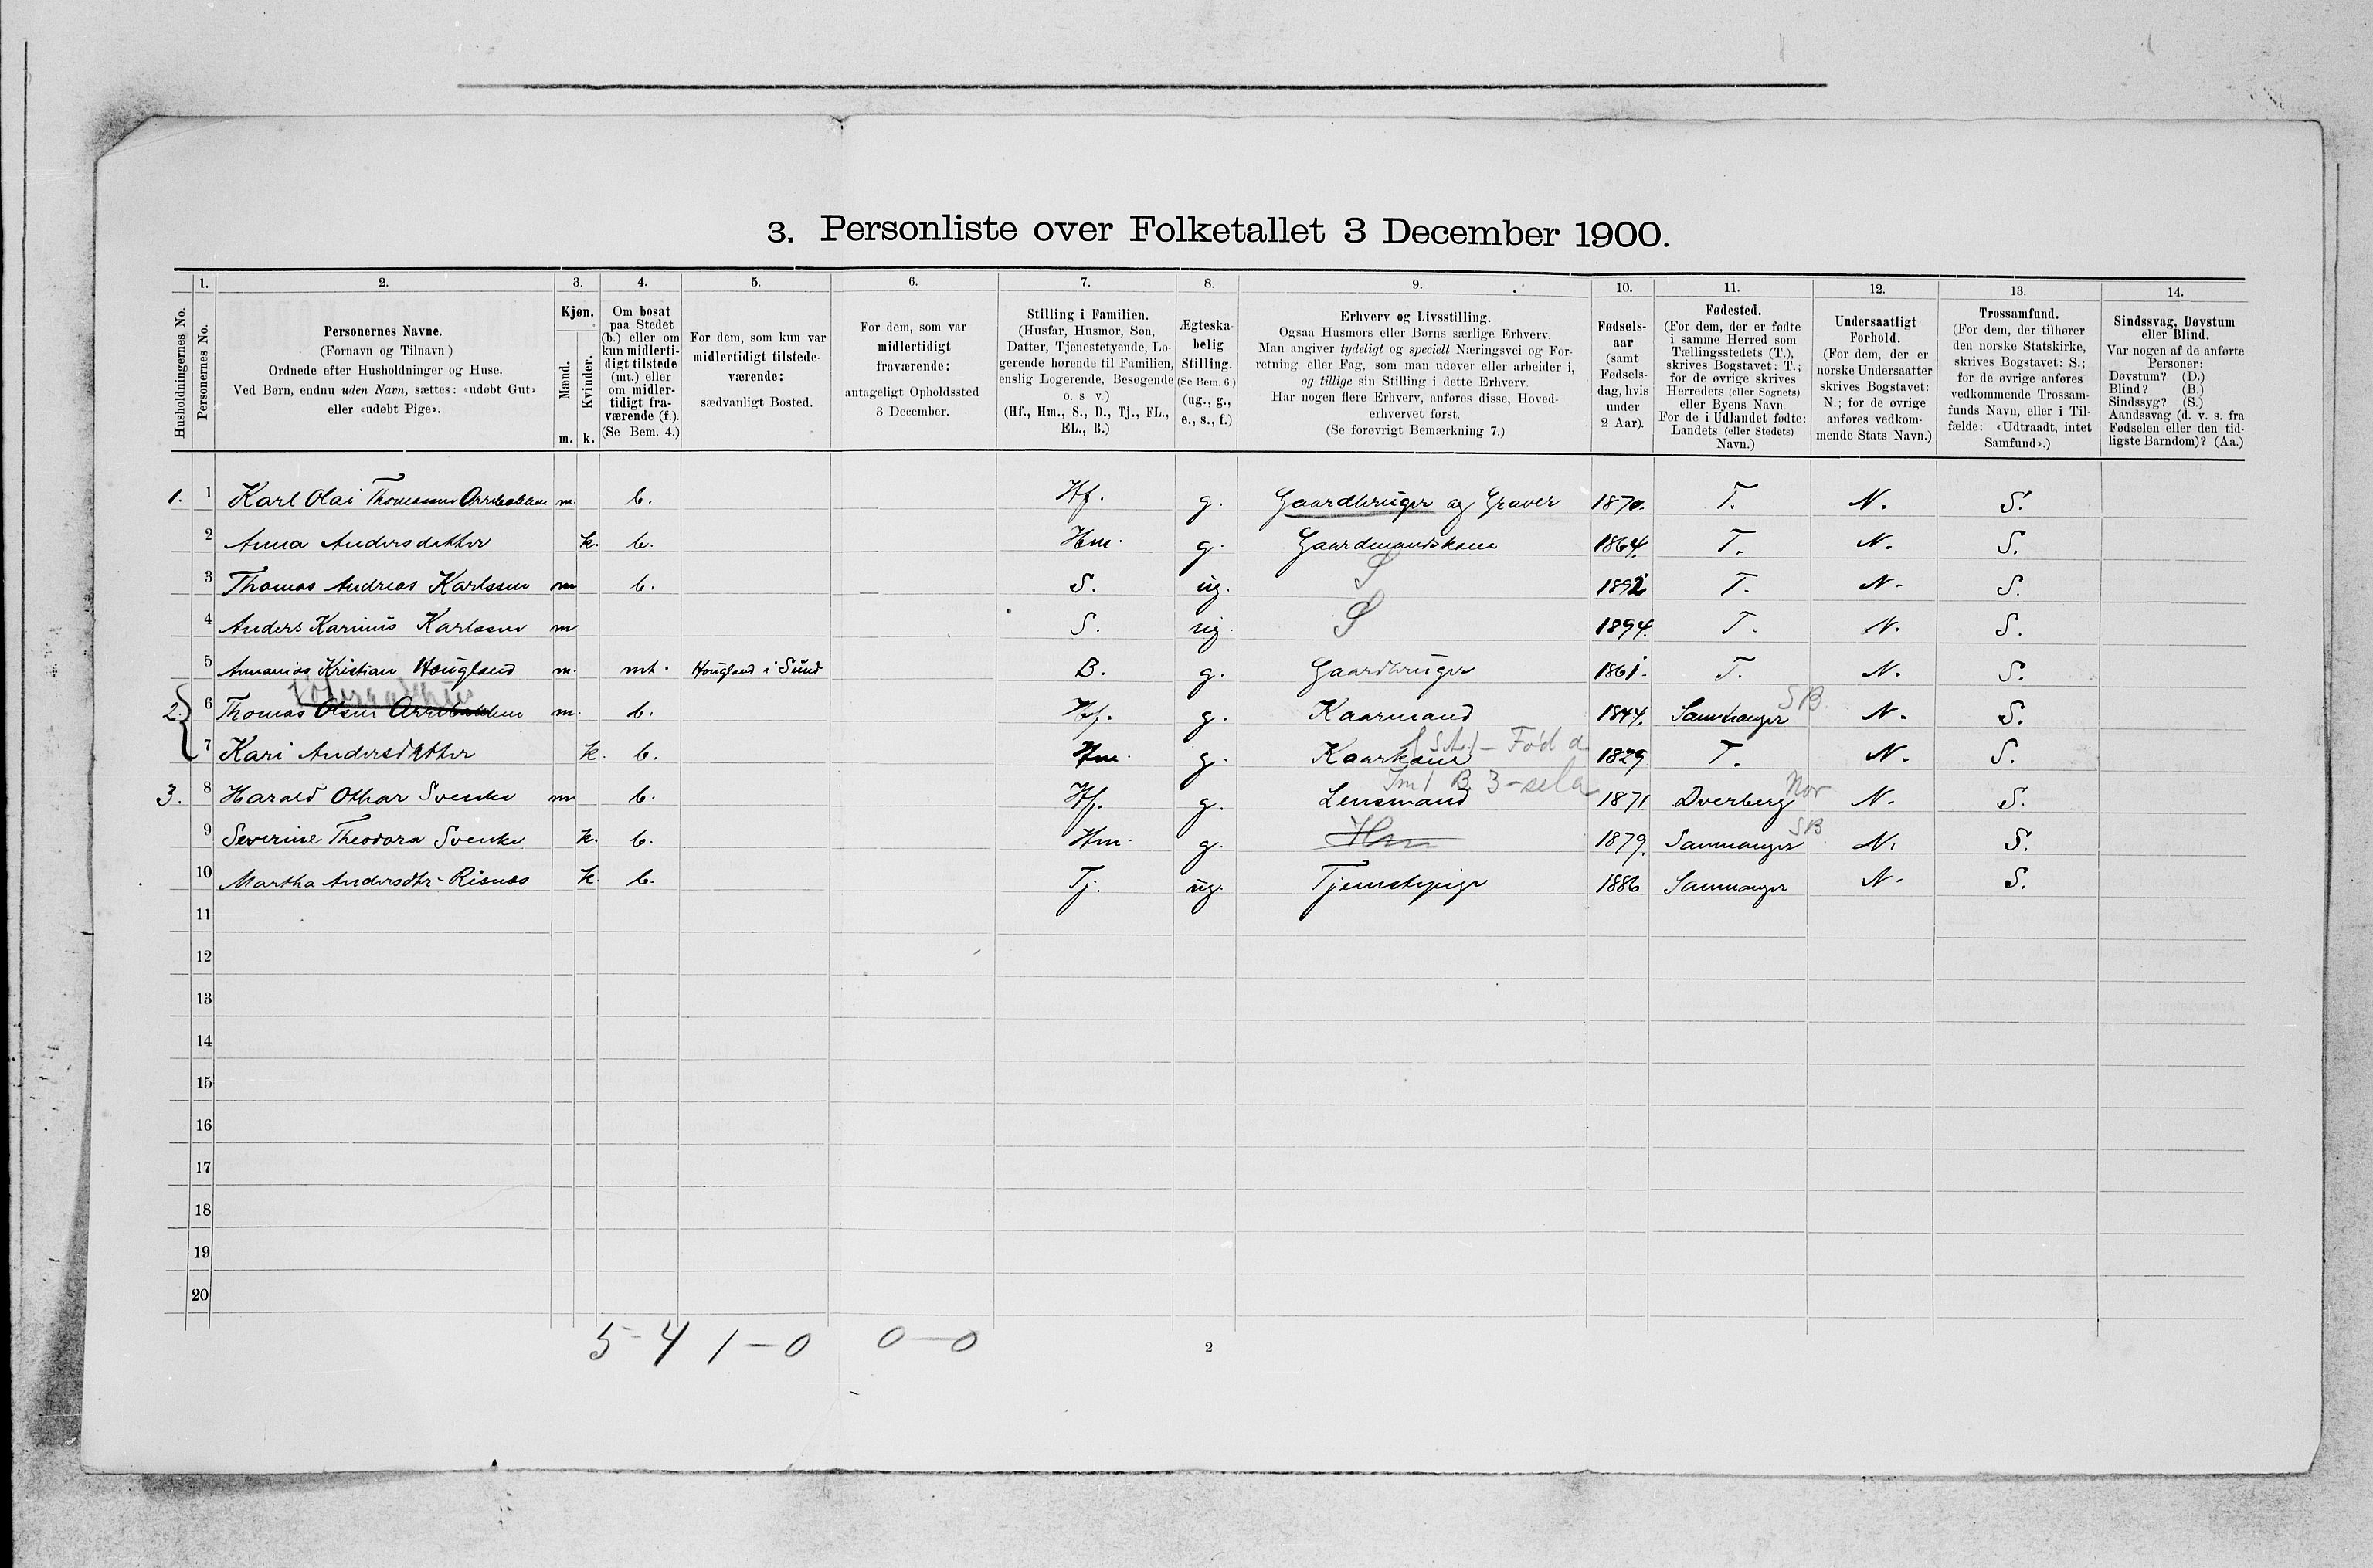 3. Personliste over Folketallet 3 December 1900.
Husholdningernes No.
1. Personernes No.
2. Personernes Navne.
(Fornavn og Tilnavn)
Ordnede efter Husholdninger og Huse.
Ved Børn, endnu uden Navn, sættes: «udøbt Gut»
eller «udøbt Pige».
3. Kjøn.
Mænd. m.
Kvinder. k.
4. Om bosat
paa Stedet
(b.) eller om
kun midlerti-
digt tilstede
(mt.) eller
om midler-
tidigt fra-
værende (f.).
(Se Bem. 4.)
5. For dem, som kun var
midlertidigt tilstede-
værende:
sædvanligt Bosted.
6. For dem, som var
midlertidigt
fraværende:
antageligt Opholdssted
3 December.
7. Stilling i Familien.
(Husfar, Husmor, Søn,
Datter, Tjenestetyende, Lo-
gerende hørende til Familien,
enslig Logerende, Besøgende
o. s v.)
(Hf., Hm., S., D., Tj., FL.,
EL., B.)
8. Ægteska-
belig
Stilling.
(Se Bem. 6.)
(ug., g.,
e., s., f.)
9. Erhverv og Livsstilling.
Ogsaa Husmors eller Børns særlige Erhverv.
Man angiver tydeligt og specielt Næringsvei og For-
retning eller Fag, som man udøver eller arbeider i,
og tillige sin Stilling i dette Erhverv.
Har nogen flere Erhverv, anføres disse, Hoved-
erhvervet først.
(Se forøvrigt Bemærkning 7.)
10. Fødsels-
aar
(samt
Fødsels-
dag, hvis
under
2 Aar).
11. Fødested.
(For dem, der er fødte
i samme Herred som
Tællingsstedets (T.),
skrives Bogstavet: T.;
for de øvrige skrives
Herredets (eller Sognets)
eller Byens Navn.
For de i Udlandet fødte:
Landets (eller Stedets)
Navn.)
12. Undersaatligt
Forhold.
(For dem, der er
norske Undersaatter
skrives Bogstavet:
N.; for de øvrige
anføres vedkom-
mende Stats Navn.)
13. Trossamfund.
(For dem, der tilhører
den norske Statskirke,
skrives Bogstavet: S.;
for de øvrige anføres
vedkommende Trossam-
funds Navn, eller i Til-
fælde: «Udtraadt, intet
Samfund».)
14. Sindssvag, Døvstum
eller Blind.
Var nogen af de anførte
Personer:
Døvstum? (D.)
Blind? (B.)
Sindssyg? (S.)
Aandssvag (d. v. s. fra
Fødselen eller den tid-
ligste Barndom)? (Aa.)
1. 1 Karl Olai Thomassen m. b. Hf. g. Gaardbruger og Graver 1870. T. N. S.
2 Anna Andersdatter k. b. Hm. g. Gaardmandskone 1864. T. N. S.
3 Thomas Andreas Karlssen m b. S. ug. S 1892 T. N. S.
4 Anders Karinus Karlssen m S. ug. S 1894. T. N. S.
5 Ananias Kristian Hougland m. mt. Hougland i Sund B. g. Gaardbruger 1861. T. N. S.
2. 6 Thomas Olsen m. b. Hf. g. Kaarmand 1844. Samnanger SB N. S.
7 Kari Andersdatter k. b. Hm. g. Kaarkone Fød a 1829 T. N. S.
3. 8 Harald Othar Svenke m b. Hf. g. Lensmand 1871 Dverberg Nor N. S.
9 Severine Theodora Svenke k. b. Hm. g. Hm 1879. Samnanger SB N. S.
10 Martha Andersdtr. Risnes k. b. Tj. ug. Tjenestepige 1886 Samnanger N. S.
11
12
13
14
15
16
17
18
19
20
5-4 1-0 0-0
2